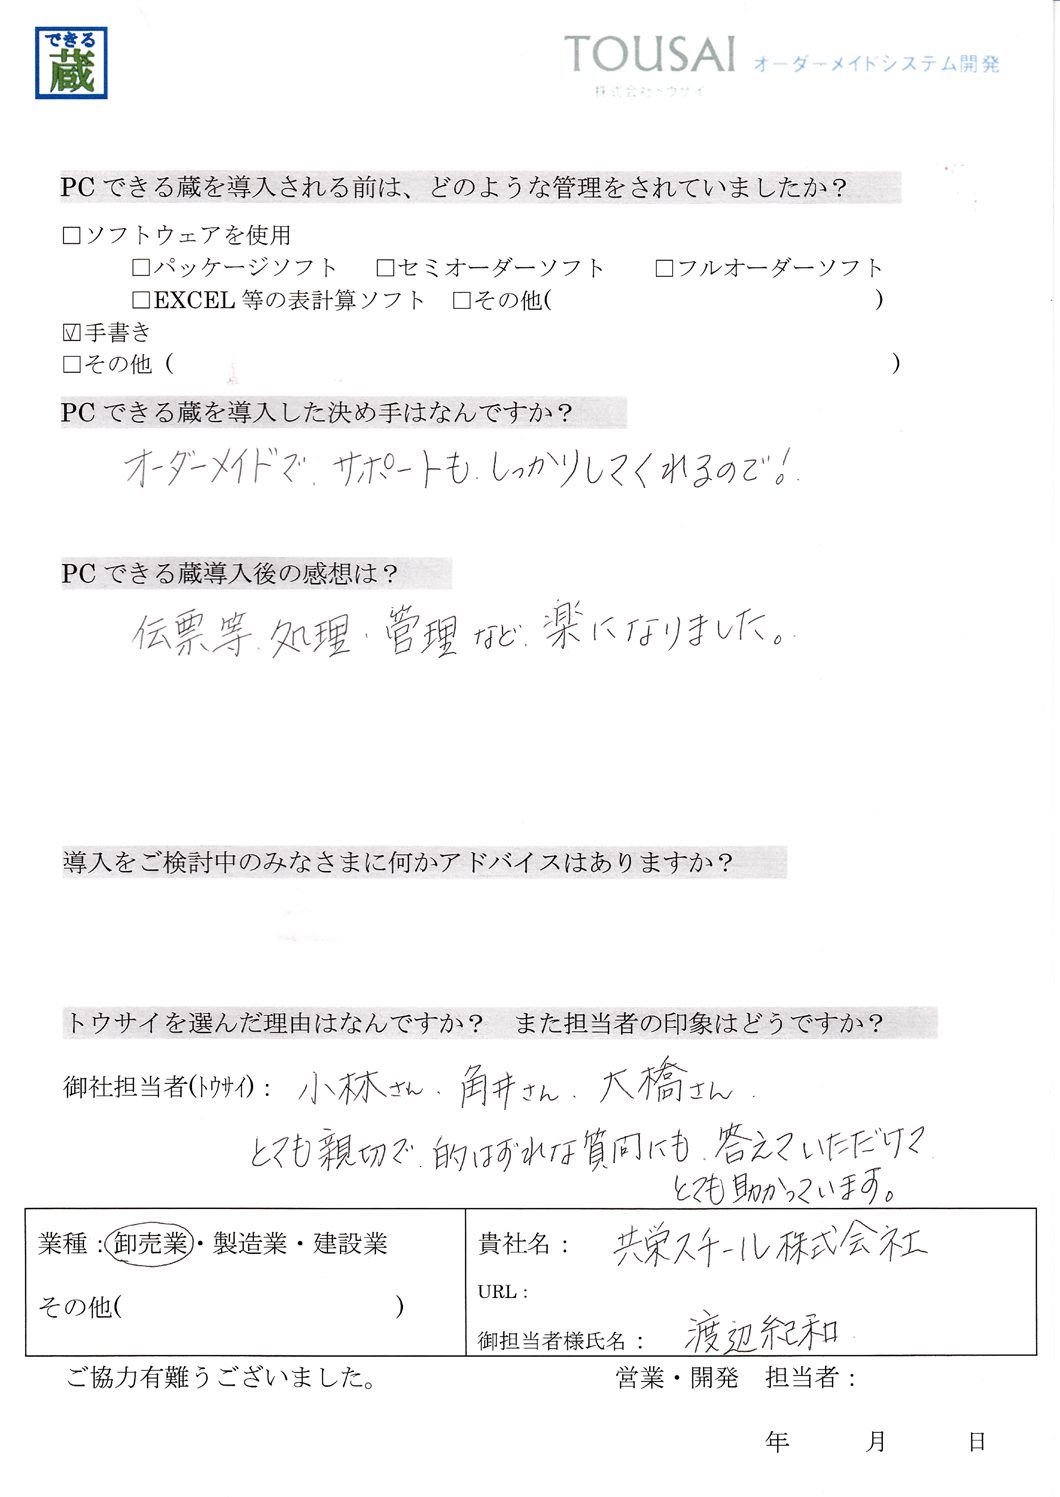 できる
蔵
TOUSAI オーダーメイドシステム開発
株式会社トウサイ
PCできる蔵を導入される前は、どのような管理をされていましたか？
□ソフトウェアを使用
□パッケージソフト □セミオーダーソフト □フルオーダーソフト
□EXCEL 等の表計算ソフト □その他( )
☑手書き
□その他 ( )
PCできる蔵を導入した決め手はなんですか？
オーダーメイドで、サポートも、しっかりしてくれるので！
PCできる蔵導入後の感想は？
伝票等、処理、管理など、楽になりました。
導入をご検討中のみなさまに何かアドバイスはありますか？
トウサイを選んだ理由はなんですか？ また担当者の印象はどうですか？
御社担当者(ﾄｳｻｲ)： 小林さん、角井さん、大橋さん
とても親切で、的はずれな質問にも、答えていただけて
とても助かっています。
業種：卸売業・製造業・建設業
その他( )
貴社名： 共栄スチール株式会社
URL：
御担当者様氏名： 渡辺紀和
ご協力有難うございました。
営業・開発 担当者：
年 月 日